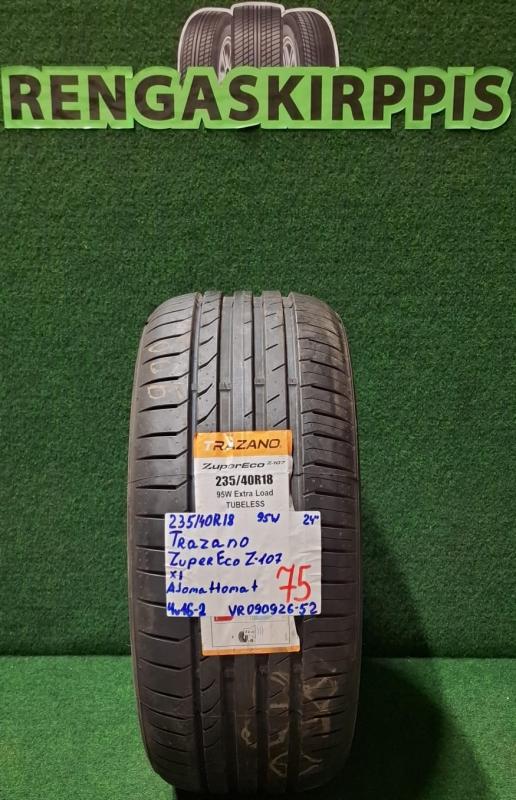 RENGASKIRPPIS
TRAZANO
ZuperEco Z-107
235/40R18
95W Extra Load
TUBELESS
235/40R18 95W 24"
Trazano
ZuperEco Z-107
x1
Ajomattomat 75
VR090926-52